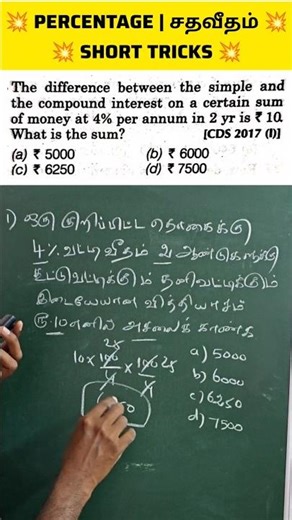 PERCENTAGE | சதவீதம்
SHORT TRICKS
The difference between the simple and
the compound interest on a certain sum
of money at 4% per annum in 2 yr is ₹ 10.
What is the sum? [CDS 2017 (I)]
(a) ₹ 5000 (b) ₹ 6000
(c) ₹ 6250 (d) ₹ 7500
1) ஒரு குறிப்பிட்ட தொகைக்கு
4% வட்டி வீதம் 2 ஆண்டுகளுக்கு
கூட்டுவட்டிக்கும் தனிவட்டிக்கும்
இடையேயான வித்தியாசம்
ரூ.10 எனில் அசலைக் காண்க
25
10 x 100 x 100 25
4 4
a) 5000
b) 6000
c) 6250
d) 7500